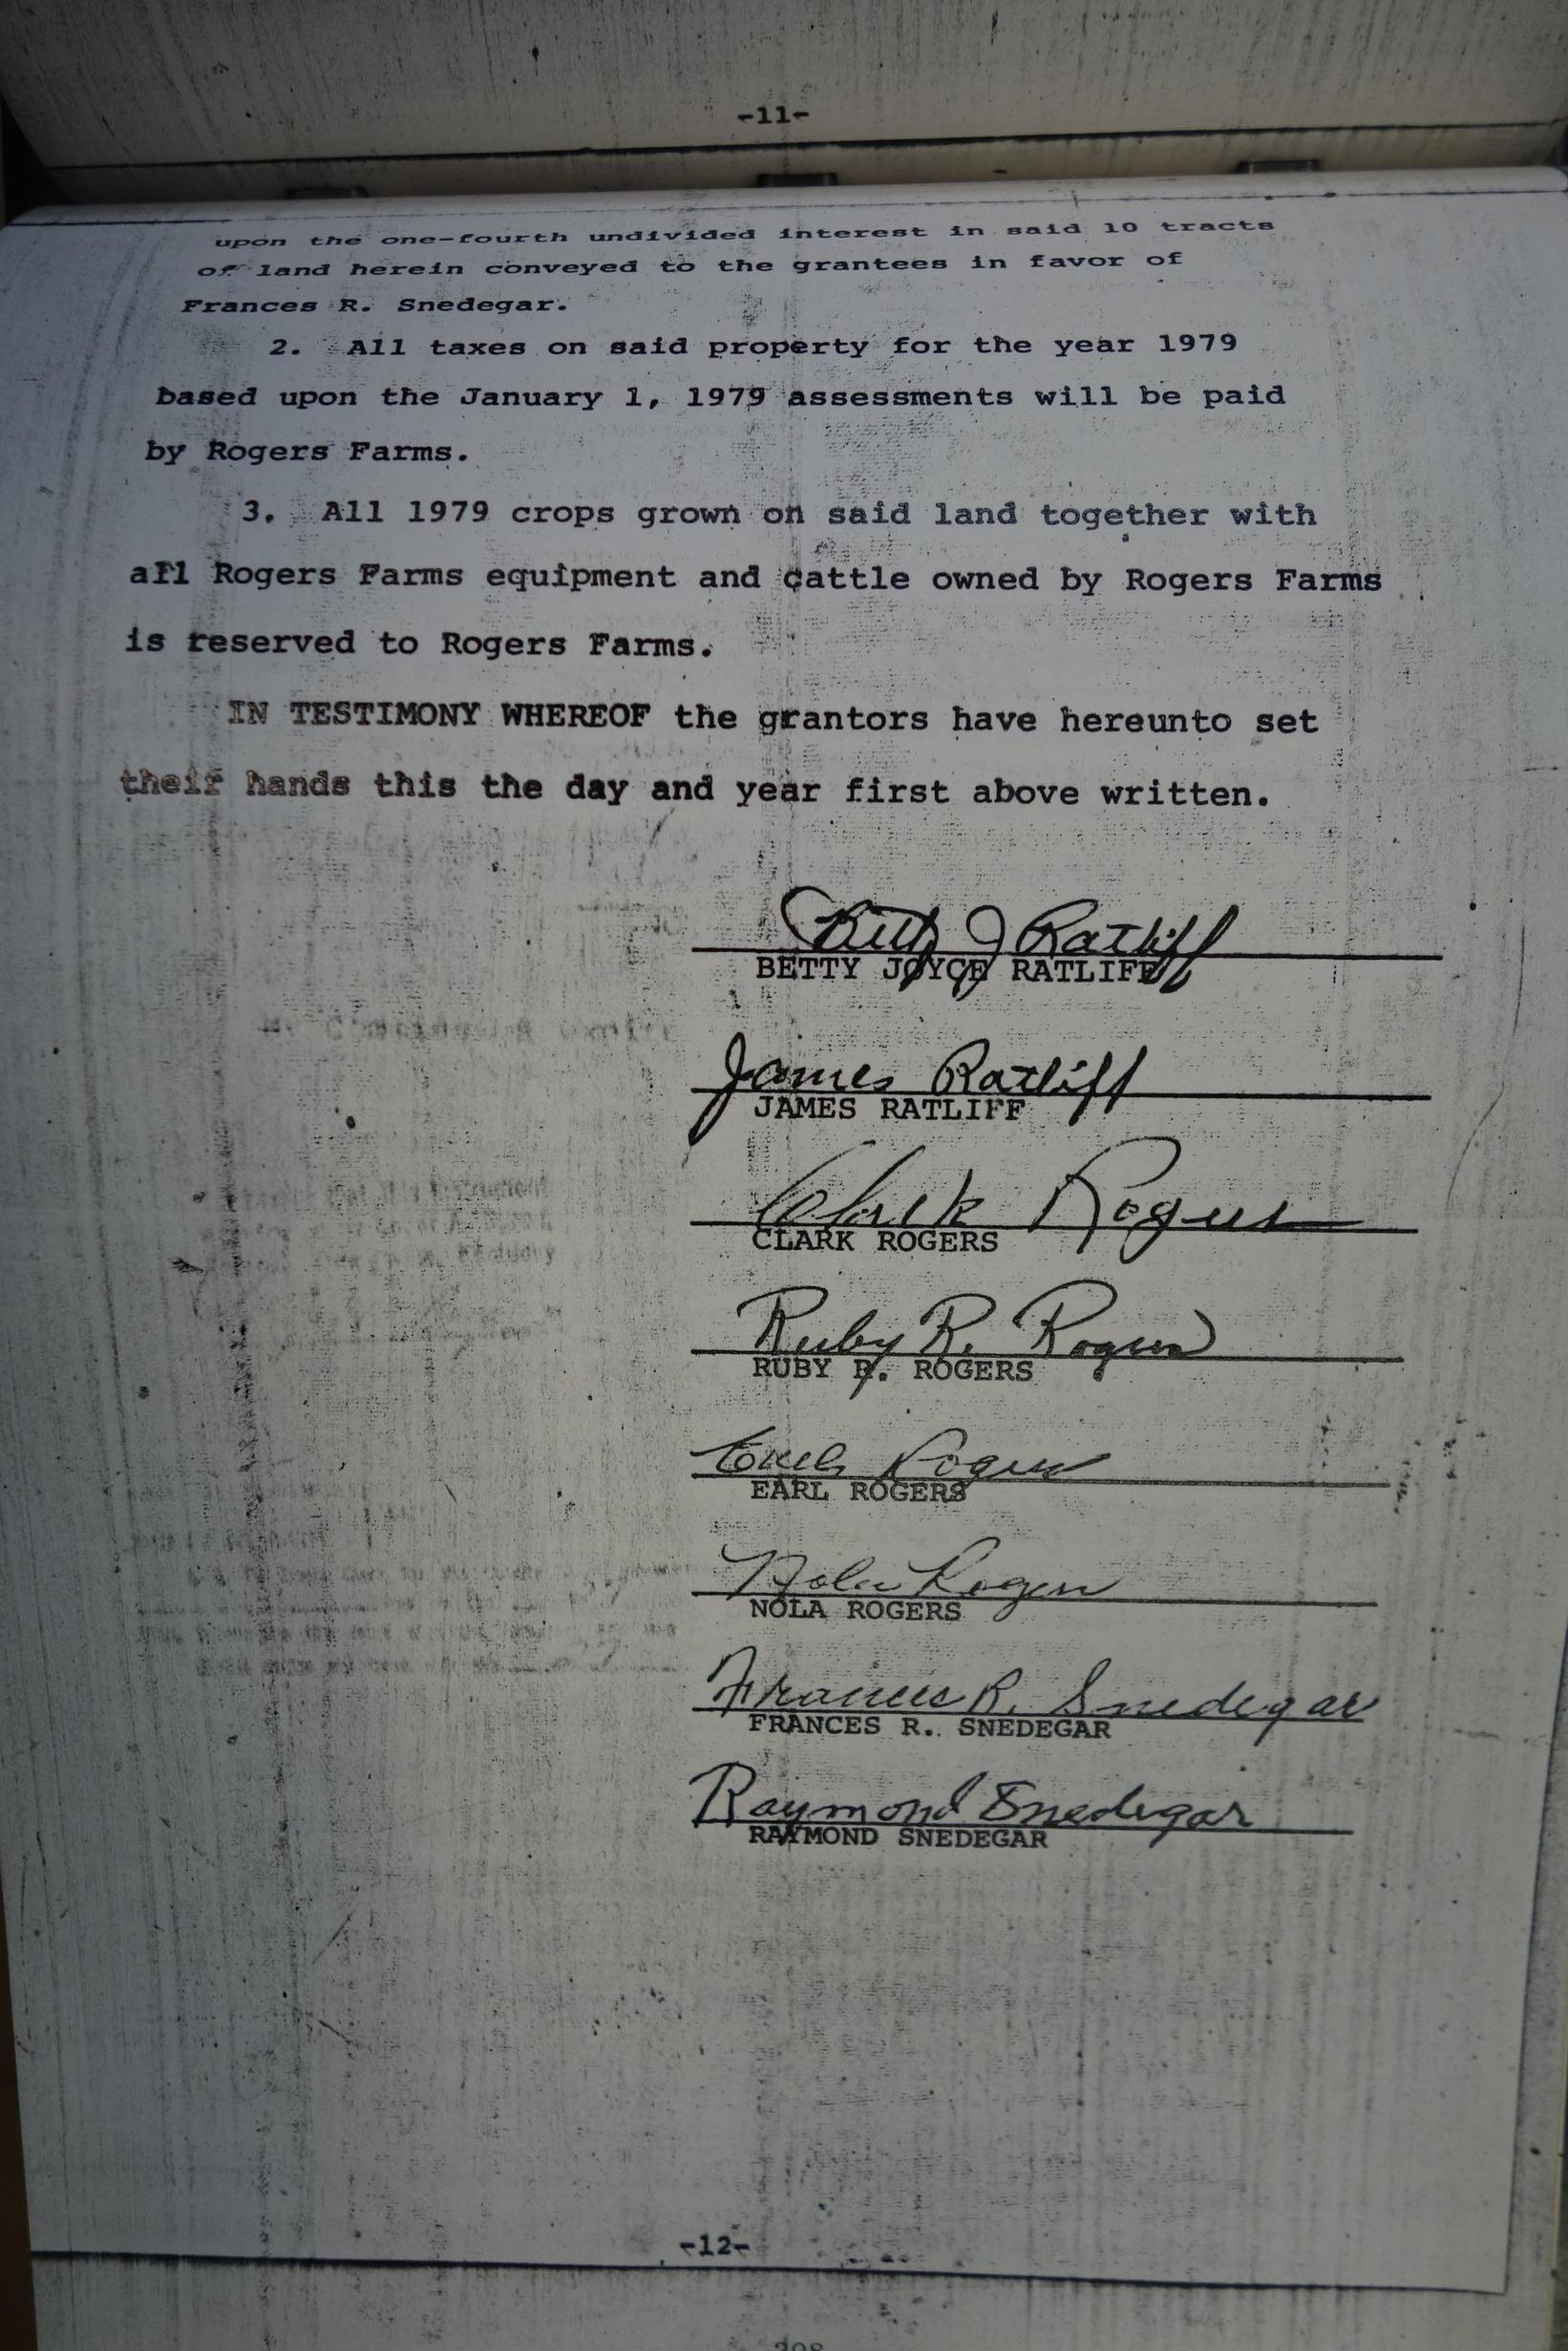 -11-
upon the one-fourth undivided interest in said 10 tracts
of land herein conveyed to the grantees in favor of
Frances R. Snedegar.
2. All taxes on said property for the year 1979
based upon the January 1, 1979 assessments will be paid
by Rogers Farms.
3. All 1979 crops grown on said land together with
all Rogers Farms equipment and cattle owned by Rogers Farms
is reserved to Rogers Farms.
IN TESTIMONY WHEREOF the grantors have hereunto set
their hands this the day and year first above written.
Betty J Ratliff
BETTY JOYCE RATLIFF
James Ratliff
JAMES RATLIFF
Clark Rogers
CLARK ROGERS
Ruby R. Rogers
RUBY R. ROGERS
Earl Rogers
EARL ROGERS
Nola Rogers
NOLA ROGERS
Frances R. Snedegar
FRANCES R. SNEDEGAR
Raymond Snedegar
RAYMOND SNEDEGAR
-12-